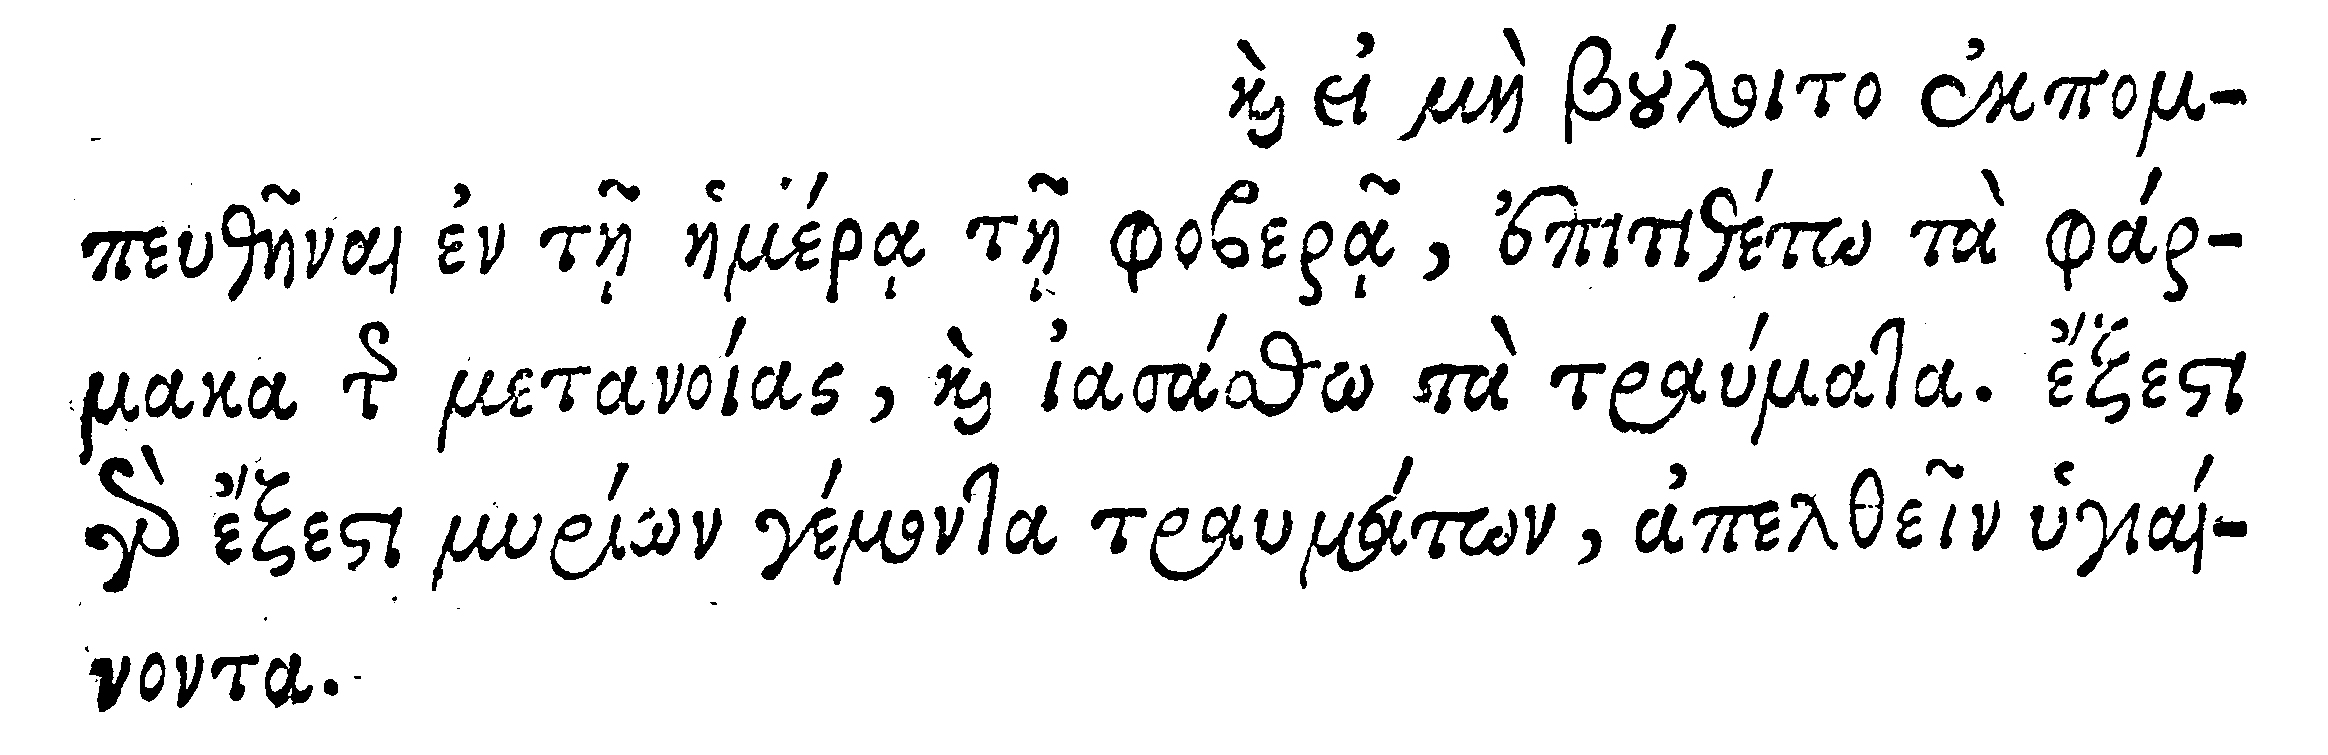 καὶ εἰ μὴ βούλοιτο ἐκπομ-
πευθῆναι ἐν τῇ ἡμέρᾳ τῇ φοβερᾷ, ἐπιτιθέτω τὰ φάρ-
μακα τῆς μετανοίας, καὶ ἰασάσθω τὰ τραύματα. ἔξεστι
γὰρ ἔξεστι μυρίων γέμοντα τραυμάτων, ἀπελθεῖν ὑγιαί-
νοντα.